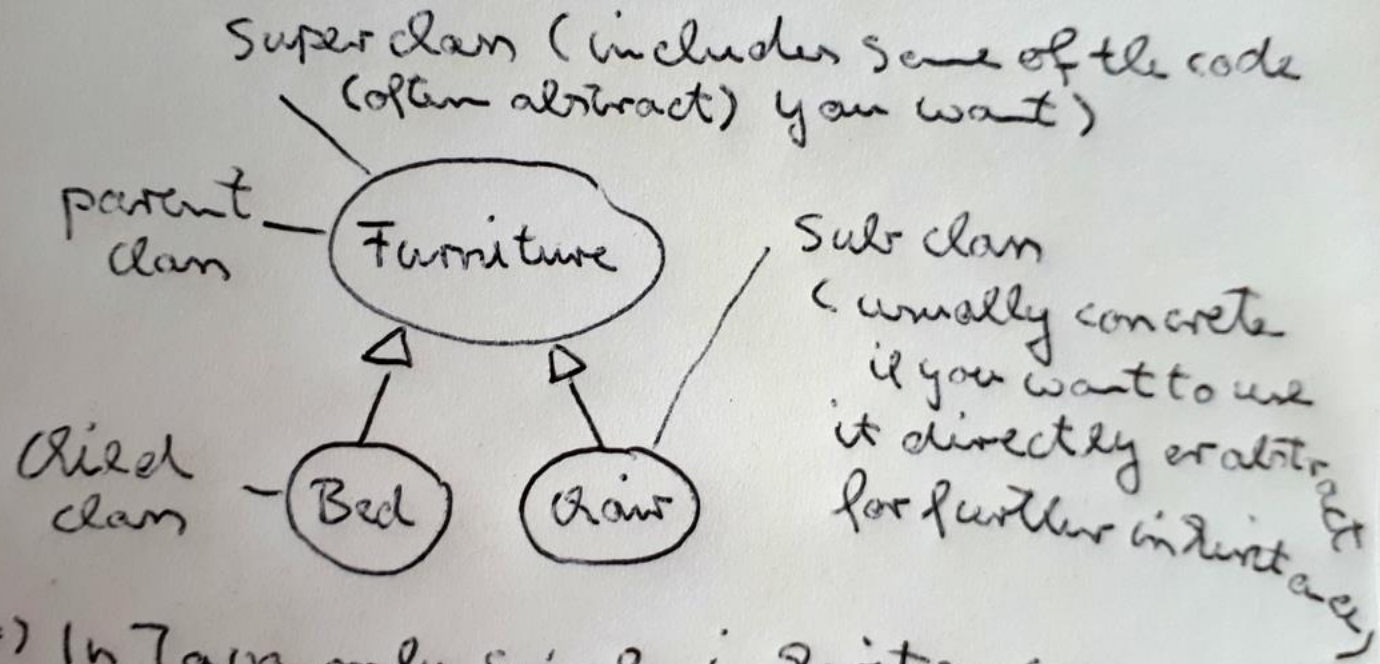 Superclass (includes some of the code
(often abstract) you want)
parent
class
Furniture
Subclass
(usually concrete
if you want to use
it directly or abstract
for further inheritance)
Child
class
Bed
Chair
In Java only